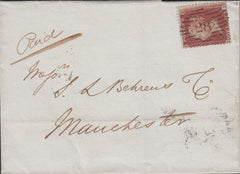 Paid
Messrs
S L Behrens &
Manchester